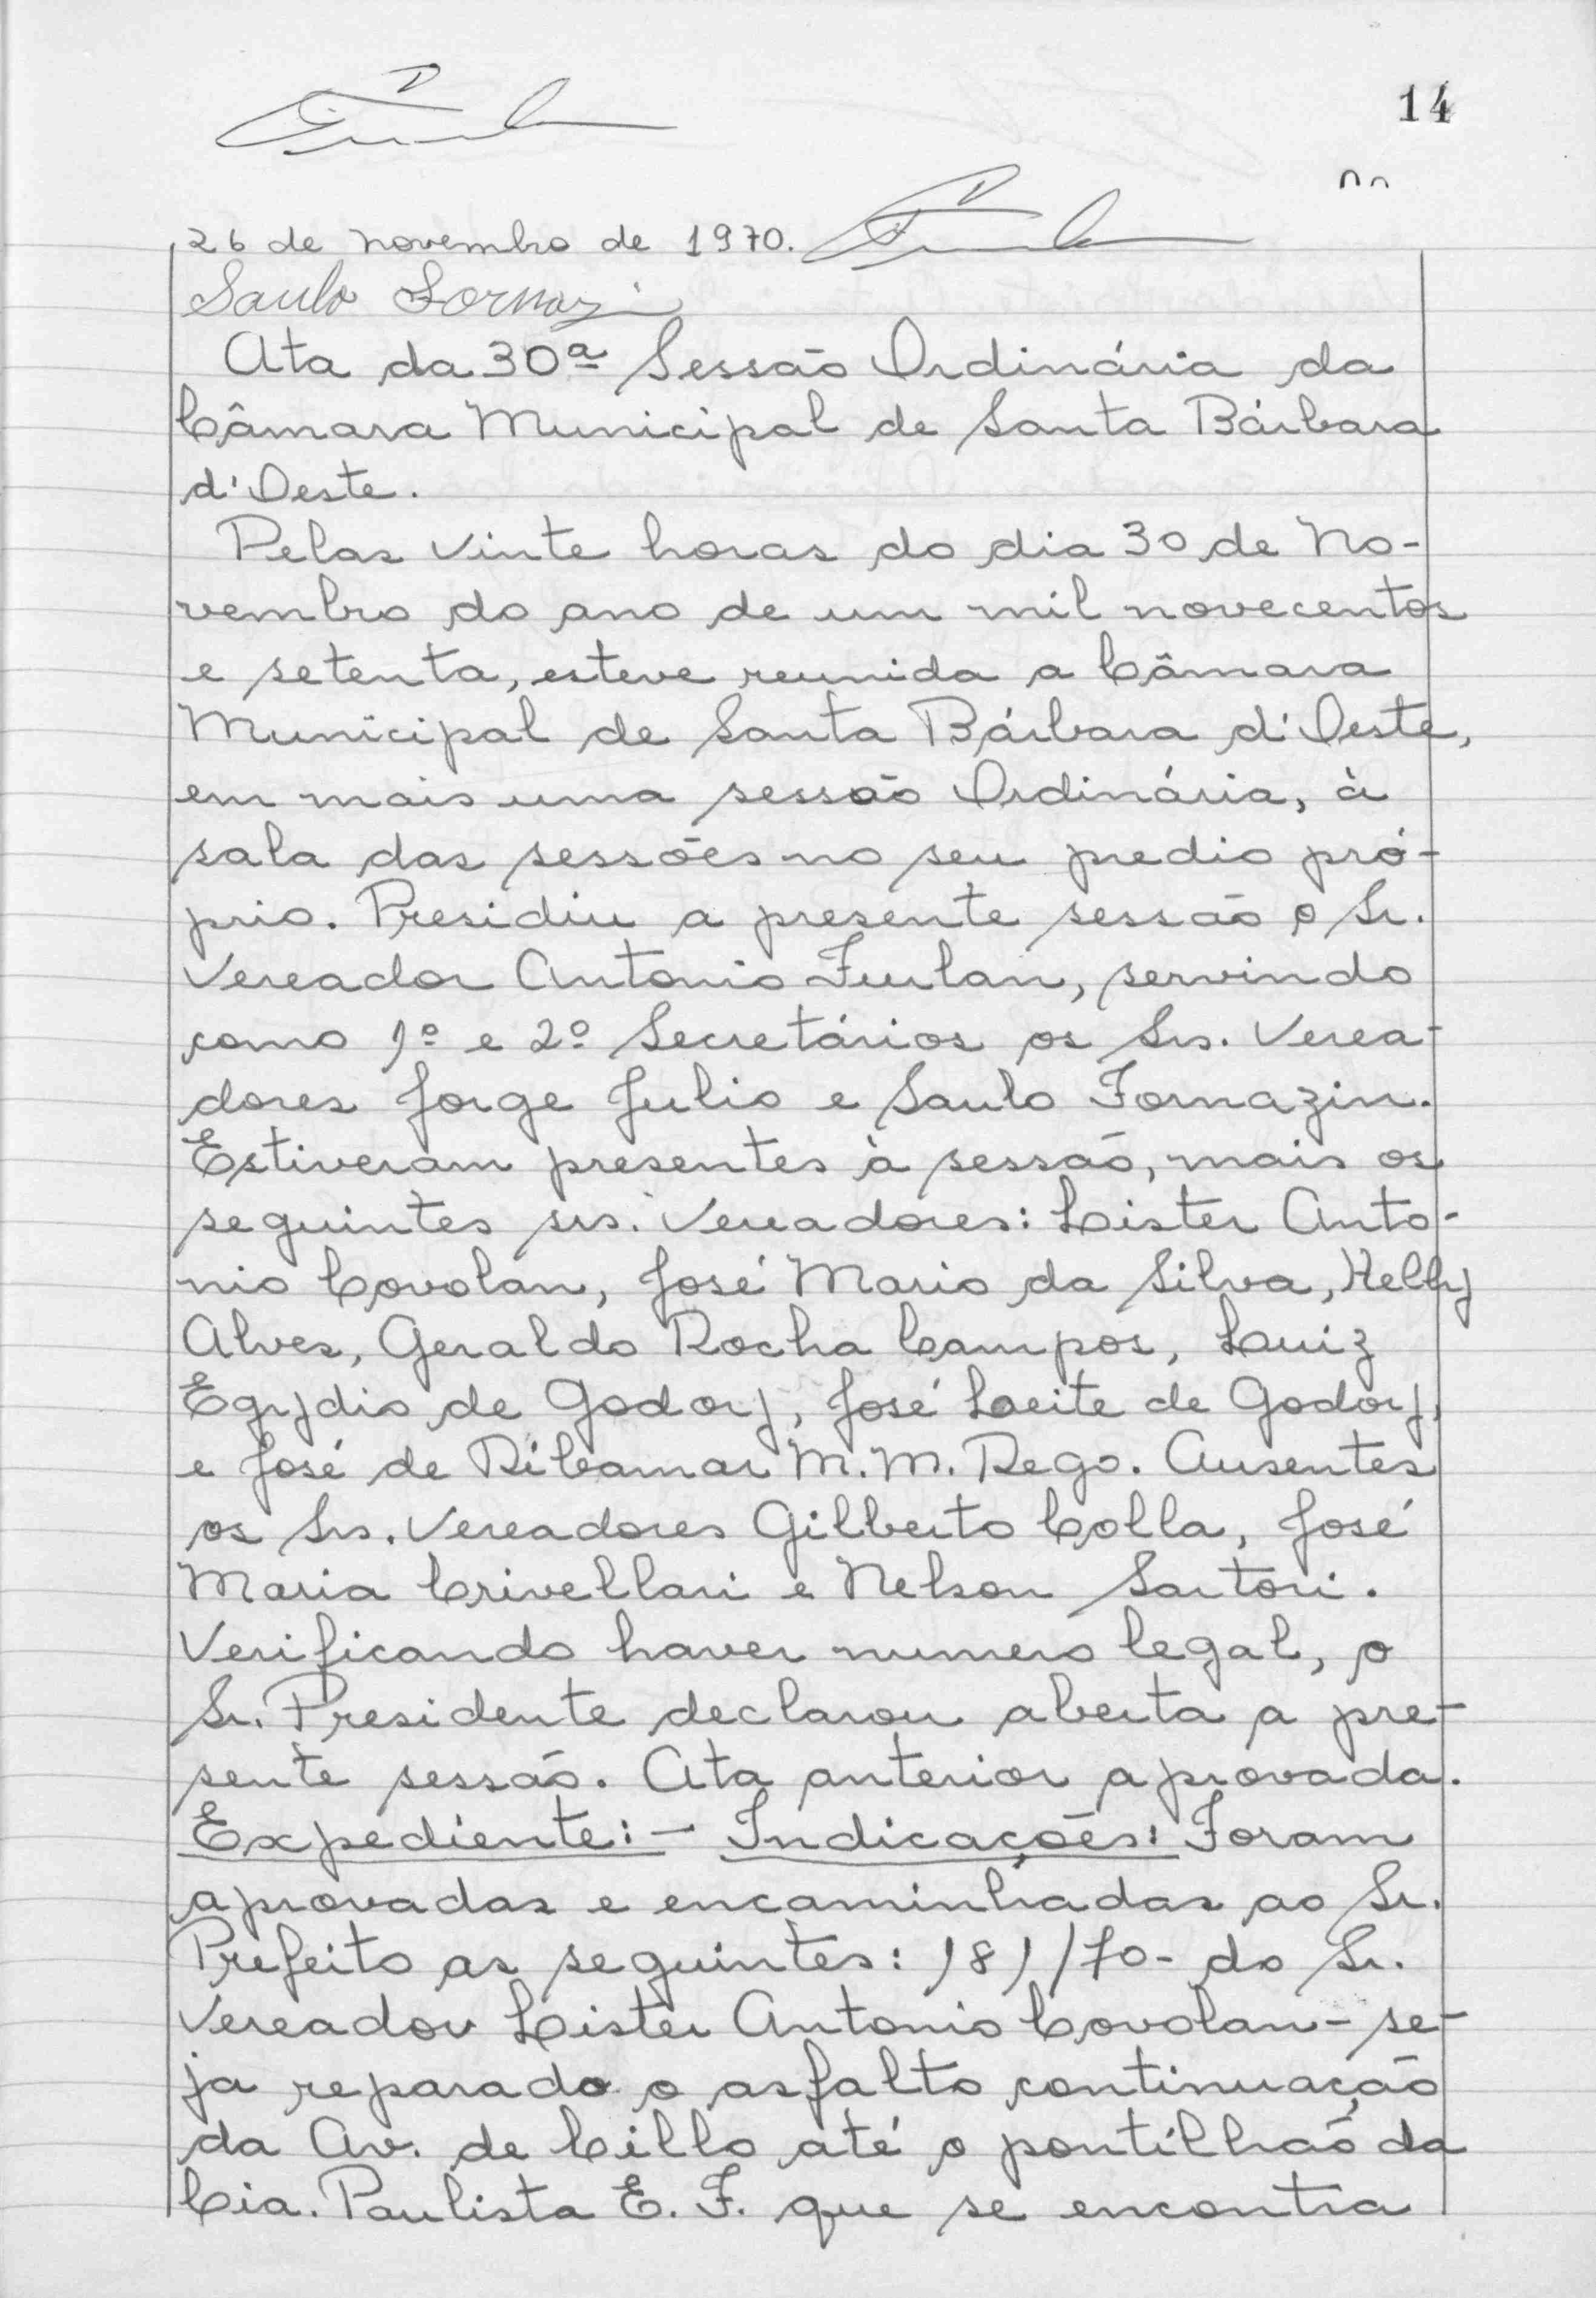 14
26 de novembro de 1970.
Saulo Fornazi
Ata da 30ª Sessão Ordinária da
Câmara Municipal de Santa Bárbara
d'Oeste.
Pelas vinte horas do dia 30 de No-
vembro do ano de um mil novecentos
e setenta, esteve reunida a Câmara
Municipal de Santa Bárbara d'Oeste,
em mais uma sessão Ordinária, à
sala das sessões no seu predio pró-
prio. Presidiu a presente sessão o Sr.
Vereador Antonio Furlan, servindo
como 1º e 2º Secretários os Srs. Verea-
dores Jorge Julio e Saulo Fornazin.
Estiveram presentes à sessão, mais os
seguintes srs. Vereadores: Lister Anto-
nio Covolan, José Mario da Silva, Helly
Alves, Geraldo Rocha Campos, Luiz
Egydio de Godoy, José Leite de Godoy,
e José de Ribamar M. M. Rego. Ausentes
os Srs. Vereadores Gilberto Colla, José
Maria Crivellari e Nelson Sartori.
Verificando haver numero legal, o
Sr. Presidente declarou aberta a pre-
sente sessão. Ata anterior aprovada.
Expediente:- Indicações: Foram
aprovadas e encaminhadas ao Sr.
Prefeito as seguintes: 181/70- do Sr.
Vereador Lister Antonio Covolan - se-
ja reparado o asfalto continuação
da Av. de Cillo até o pontilhão da
Cia. Paulista E. F. que se encontra